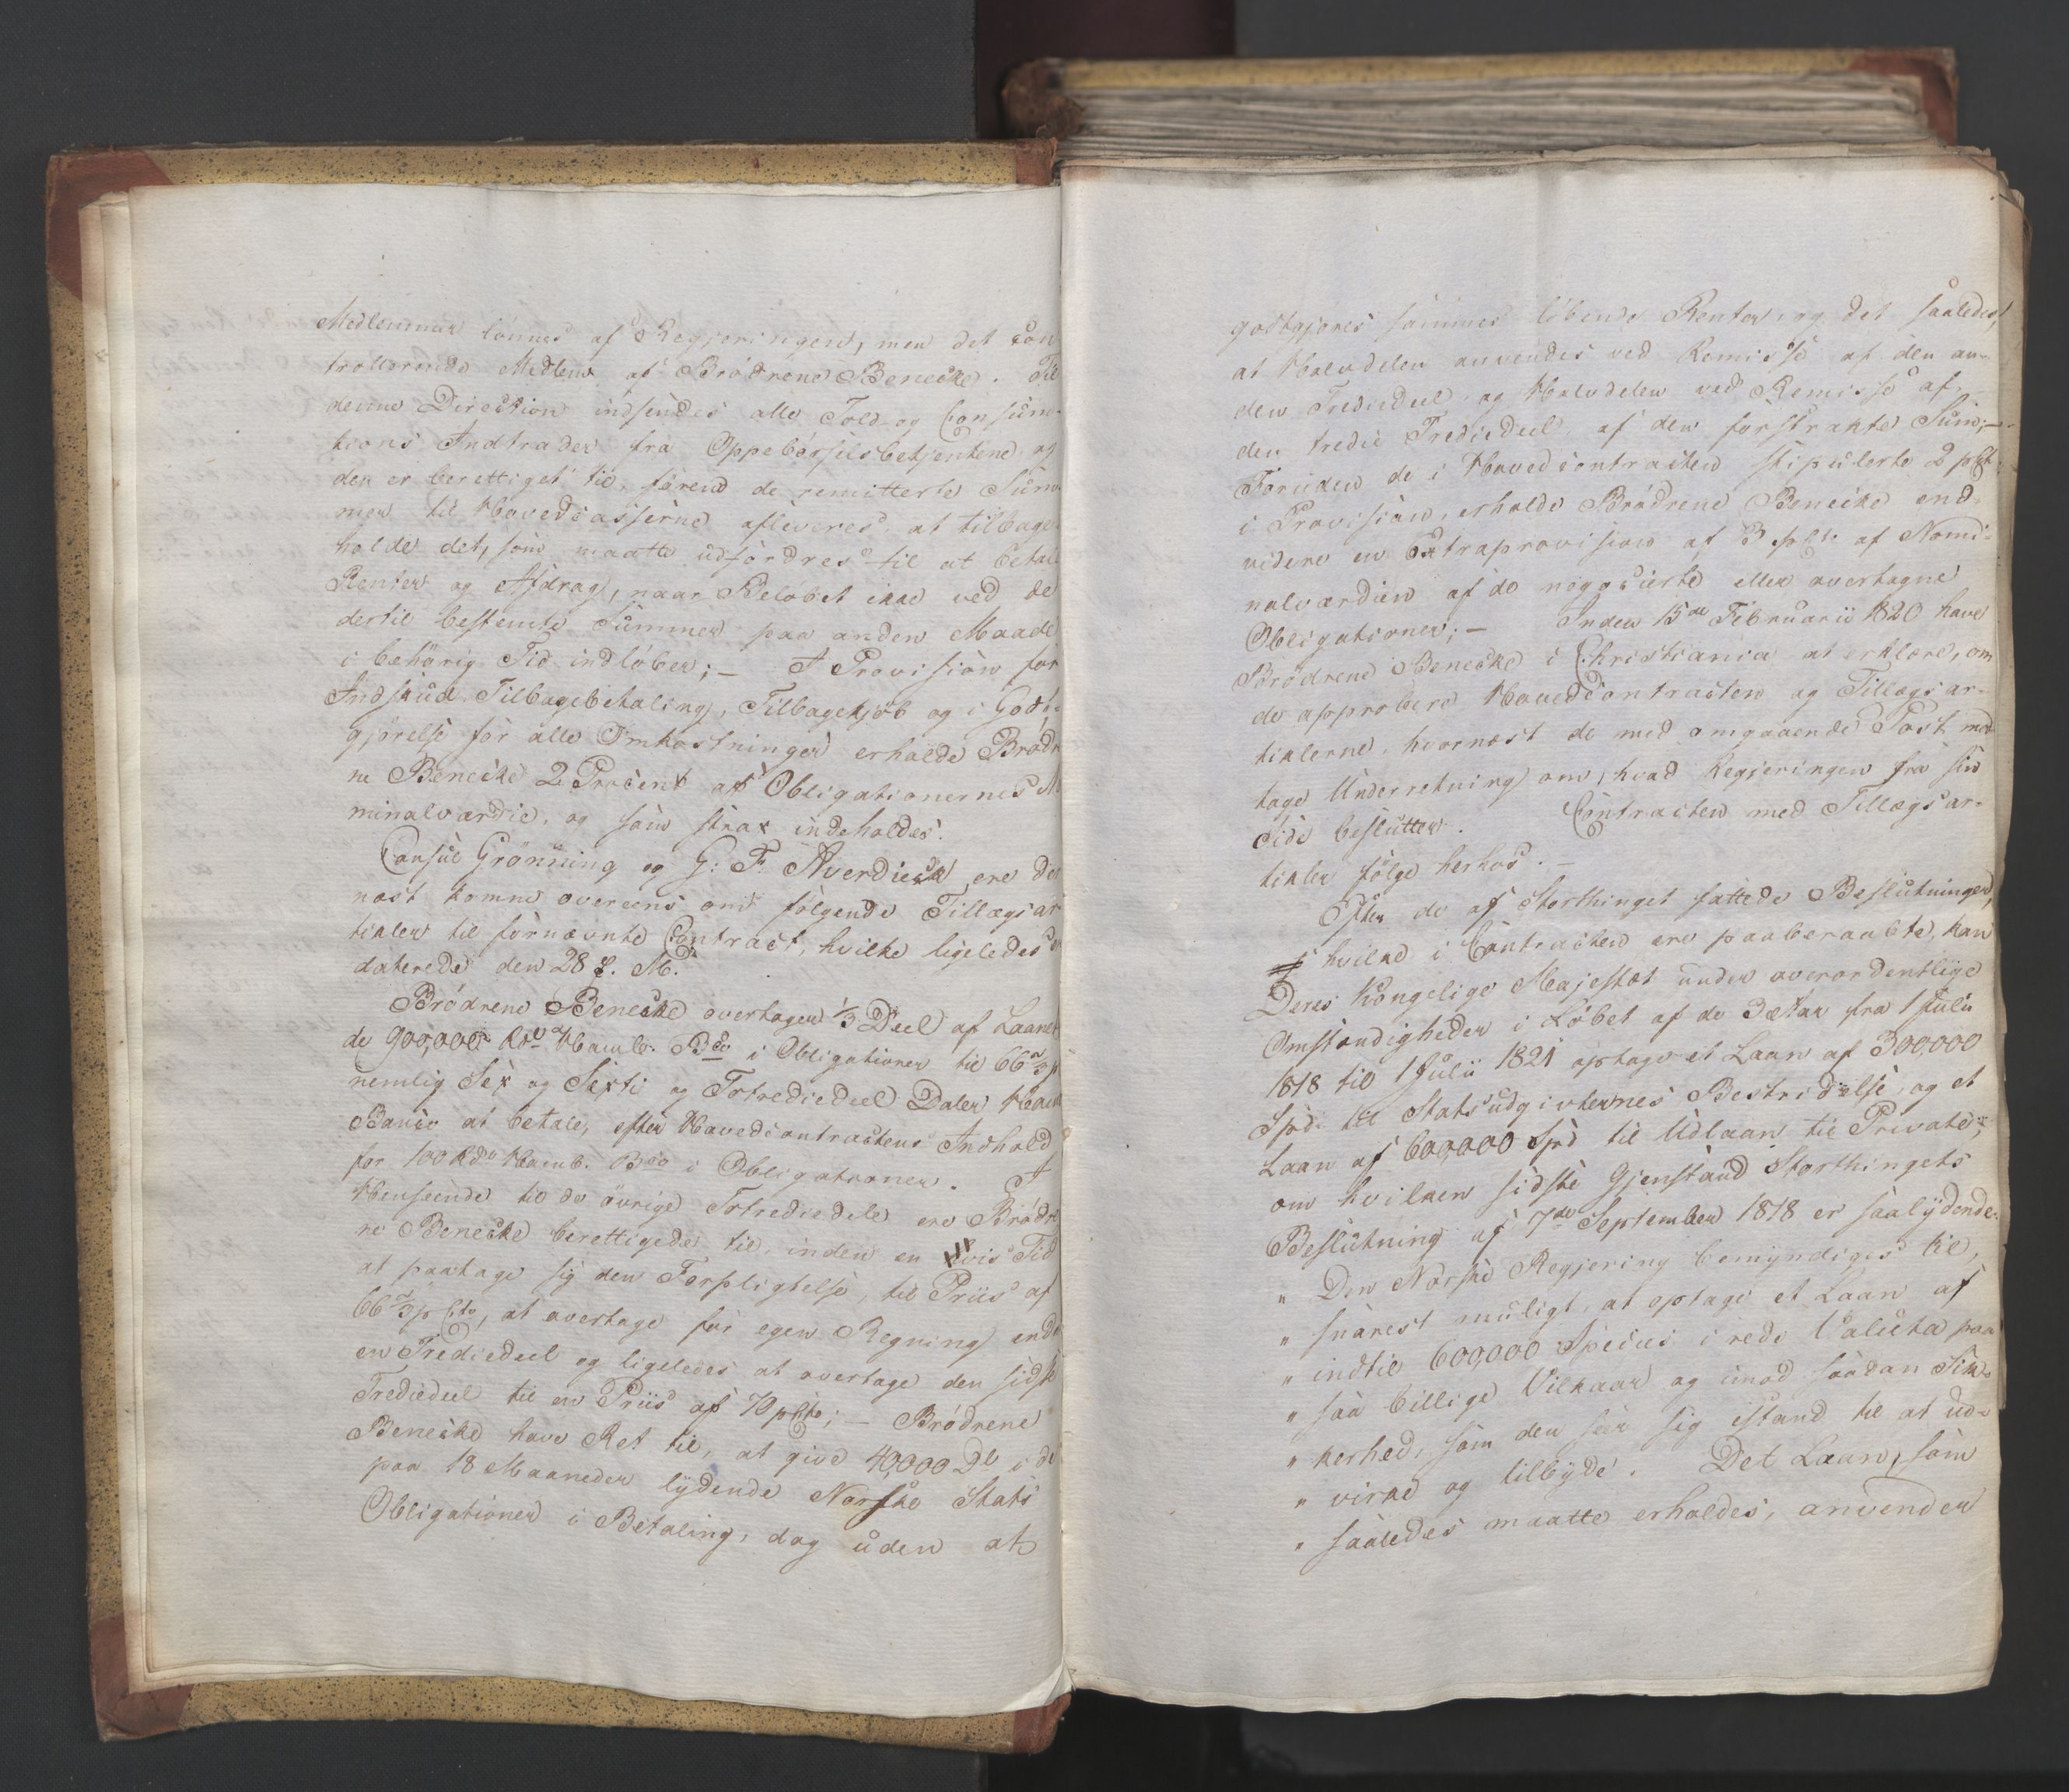 Medlemmer lønnes af Regjeringen, men det con
trollerende Medlem af Brødrene Benecke. Til
denne Direction indsendes alle Told- og Consum-
tions Indtrader fra Oppebørselsbetjentene, og
den er berettiget til, førend de remitterte Sum-
mer til Hovedcasserne afleveres at tilbage-
holde det, som maatte udfordres til at betale
Renter og Afdrag, naar Beløbet ikke ved de
dertil bestemte Summer paa anden Maade
i behørig Tid indløber; — I Provision for
Indskud, Tilbagebetaling, Tilbagekjøb og i Godt-
gjørelse for alle Omkostninger erholde Brødre
ne Benecke 2 Procent af Obligationernes No
minalværdie, og som strax indeholdes.
Consul Grønning og G: F. Averdieck ere der
næst komne overeens om følgende Tillægsar
tikler til fornævnte Contract, hvilke ligeledes ere
daterede den 28 f. M.
Brødrene Benecke overtager 1/3 Deel af Laanet
de 900,000 Rd Hamb. Bco i Obligationer til 66 2/3 p
nemlig Sex og Sexti og Totrediedeel Daler Hamb
Banco at betale, efter Hovedcontractens Indhold
for 100 Rdr Hamb. Bco i Obligationer. I
Henseende til de øvrige Totrediedele ere Brødre
ne Benecke berettigede til, inden en vis Tid
at paatage sig den Forpligtelse, til Priis af
66 2/3 p Cto, at overtage for egen Regning endnu
en Trediedeel og ligeledes at overtage den sidste
Trediedeel til en Priis af 70 p Cto; — Brødrene
Benecke have Ret til, at give 40,000 Dl i de
paa 18 Maaneder lydende Norske Stats
Obligationer i Betaling, dog uden at
godtgjøres sammes løbende Renter, og det saaledes,
at Halvdelen anvendes ved Remisse af den an-
den Trediedeel, og Halvdelen ved Remisse af
den tredie Trediedeel, af den forstrakte Sum; —
Foruden de i Hovedcontracten stipulerte 2 pCt
i Provision, erholde Brødrene Benecke end-
videre en Extraprovision af 3 pCt. af Nomi-
nalværdien af de negocierte eller overtagne
Obligationer; — Inden 15de Februarii 1820 have
Brødrene Benecke i Christiania at erklære, om
de approbere Hovedcontracten og Tillægsar-
tiklerne, hvornæst de med omgaaende Post mod
tage Underretning om, hvad Regjeringen fra sin
Side beslutter. Contracten med Tillægsar-
tikler følge herhos. —
Efter de af Storthinget fattede Beslutninger,
hvilke i Contracten ere paaberaabte, kan
Deres Kongelige Majestæt under overordentlige
Omstændigheder i Løbet af de 3de Aar fra 1 Julii
1818 til 1 Julii 1821 optage et Laan af 300,000
Spd. til Statsudgivternes Bestridelse, og et
Laan af 600,000 Spd til Udlaan til Private;
om hvilken sidste Gjenstand Storthingets
Beslutning af 7de September 1818 er saalydende:
" Den Norske Regjering bemyndiges til,
" snarest muligt, at optage et Laan af
" indtil 600,000 Species i rede Valuta paa
" saa billige Vilkaar og imod saadan Sik-
" kerhed, som den seer sig istand til at ud-
" virke og tilbyde. Det Laan, som
" saaledes maatte erholdes, anvender